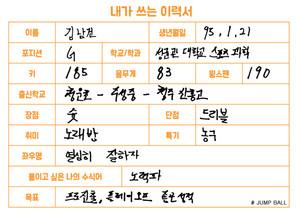 내가 쓰는 이력서
이름 김낙현 생년월일 95.1.21
포지션 G 학교/학과 성균관 대학교 스포츠 과학
키 185 몸무게 83 윙스팬 190
출신학교 - 주성중 - 청주 신흥고
장점 슛 단점 드리블
취미 노래방 특기 농구
좌우명 열심히 잘하자
붙이고 싶은 나의 수식어 노력자
목표 프로진출, 플레이오프 좋은성적
# JUMP BALL